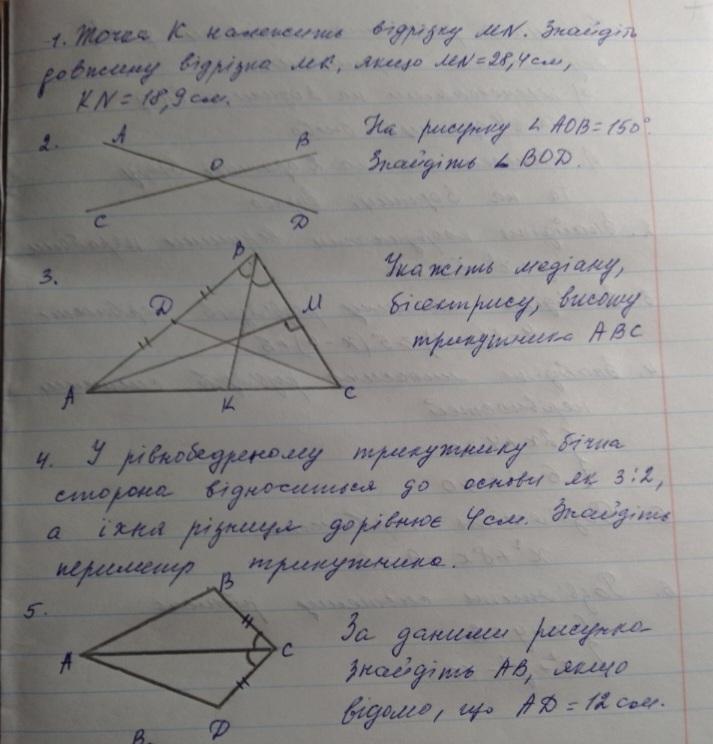 1. Точка К належить відрізку MN. Знайдіть
довжину відрізка МК, якщо MN=28,4 см,
KN=18,9 см.
2.
A
B
O
C
D
На рисунку ∠ AOB=150°.
Знайдіть ∠ BOD.
3.
B
D
M
A
K
C
Укажіть медіану,
бісектрису, висоту
трикутника ABC
4. У рівнобедреному трикутнику бічна
сторона відноситься до основи як 3:2,
а їхня різниця дорівнює 4 см. Знайдіть
периметр трикутника.
5.
B
A
C
D
За даними рисунка
знайдіть AB, якщо
відомо, що AD=12 см.
В.